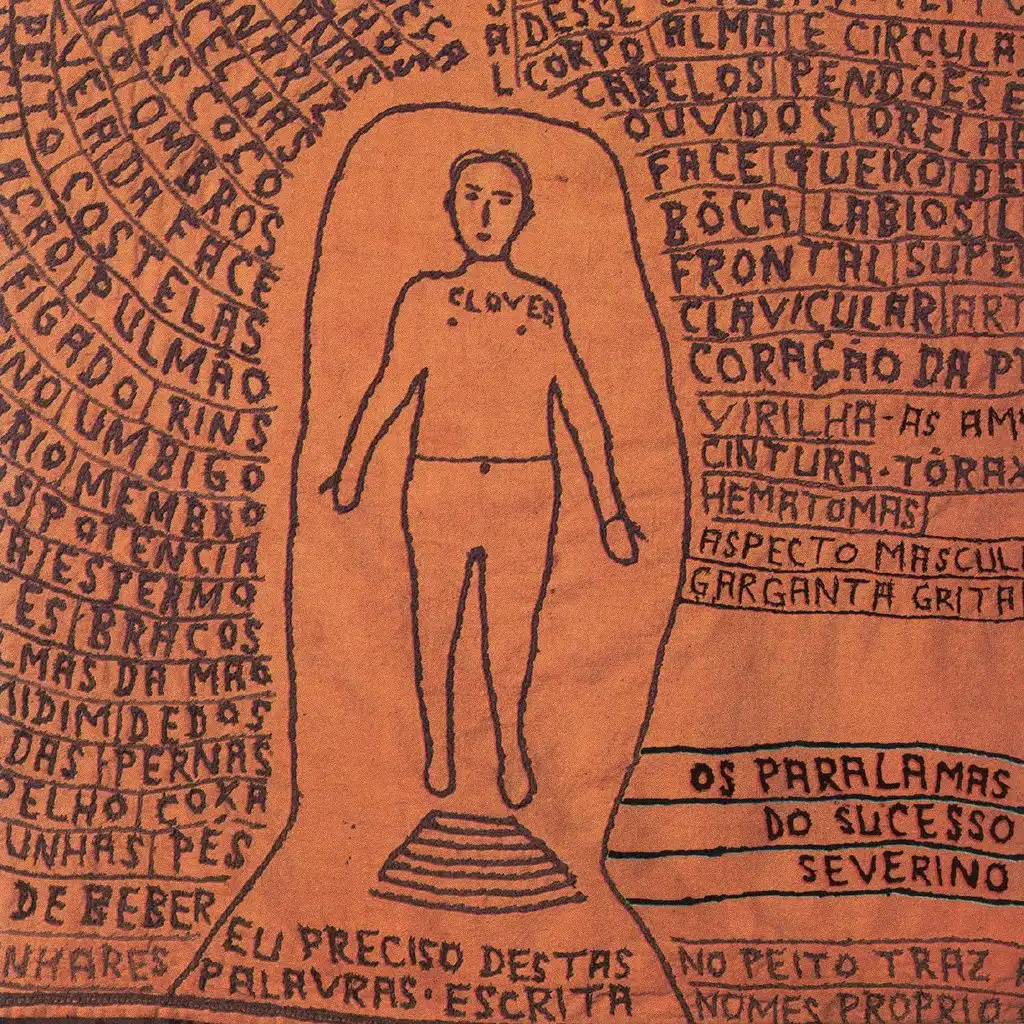 DESSE
CORPO ALMA E CIRCULA
CABELOS PENDÕES E
OUVIDOS ORELH
FACE QUEIXO DE
BÓCA LABIOS L
FRONTAL SUPE
CLAVICULAR ART
CORAÇÃO DA P
VIRILHA-AS AM
CINTURA. TÓRAX
HEMATOMAS
ASPECTO MASCUL
GARGANTA GRITA
OMBROS
VEIRA DA FACE
PEITO COSTELAS
PULMÃO
FIGADO RINS
NO UMBIGO
RIO MEMBRO
S POTENCIA
ESPERMO
ES BRACOS
LMAS DA MAO
MIDIM DEDOS
DAS PERNAS
OELHO COXA
UNHAS PÉS
DE BEBER
NHARES
CLOVES
EU PRECISO DESTAS
PALAVRAS. ESCRITA
OS PARALAMAS
DO SUCESSO
SEVERINO
NO PEITO TRAZ
NOMES PROPRIO